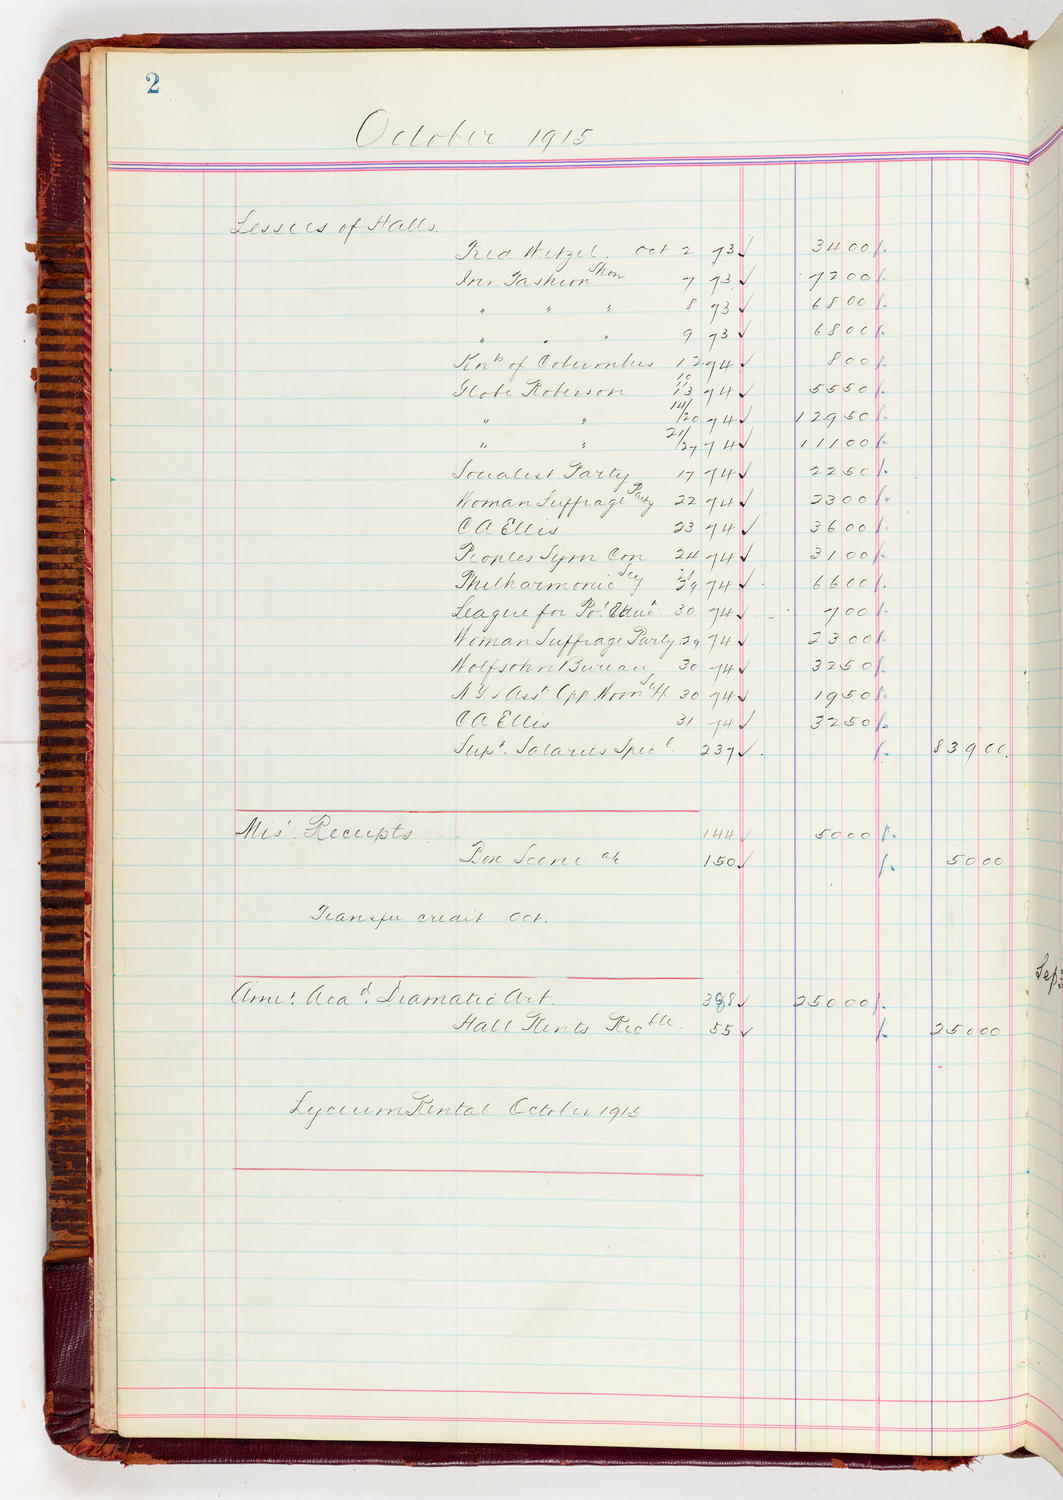 2
October 1915
Lessees of Halls.
Fred Wetzel. Oct 2 73 ✓ 34 00
Inv. Fashion Show 7 73 ✓ 72 00
" " " 8 73 ✓ 68 00
" " " 9 73 ✓ 68 00
Knts of Columbus 12 74 ✓ 8 00
Globe Roterson 10/13 74 ✓ 55 50
" " 14/20 74 ✓ 129 50
" " 21/27 74 ✓ 111 00
Socialist Party 17 74 ✓ 22 50
Woman Suffrage Party 22 74 ✓ 23 00
C A Ellis 23 74 ✓ 36 00
Peoples Sym Con 24 74 ✓ 31 00
Philharmonic Socy 29 74 ✓ 66 00
League for Pol Educn 30 74 ✓ 7 00
Woman Suffrage Party 29 74 ✓ 23 00
Wolfsohn Bureau 30 74 ✓ 32 50
N.Y.S Assn Opp. Wom Suff 30 74 ✓ 19 50
C A Ellis 31 74 ✓ 32 50
Supt. Salaries Specl. 237 ✓ 839 00
Mis' Receipts 144 ✓ 50 00
Box Scene a/c 150 ✓ 50 00
Transfer credit Oct.
Amer. Acad. Dramatic Art. 388 ✓ 250 00
Hall Rents Recble. 55 ✓ 250 00
Lyceum Rental October 1915
Sep 3